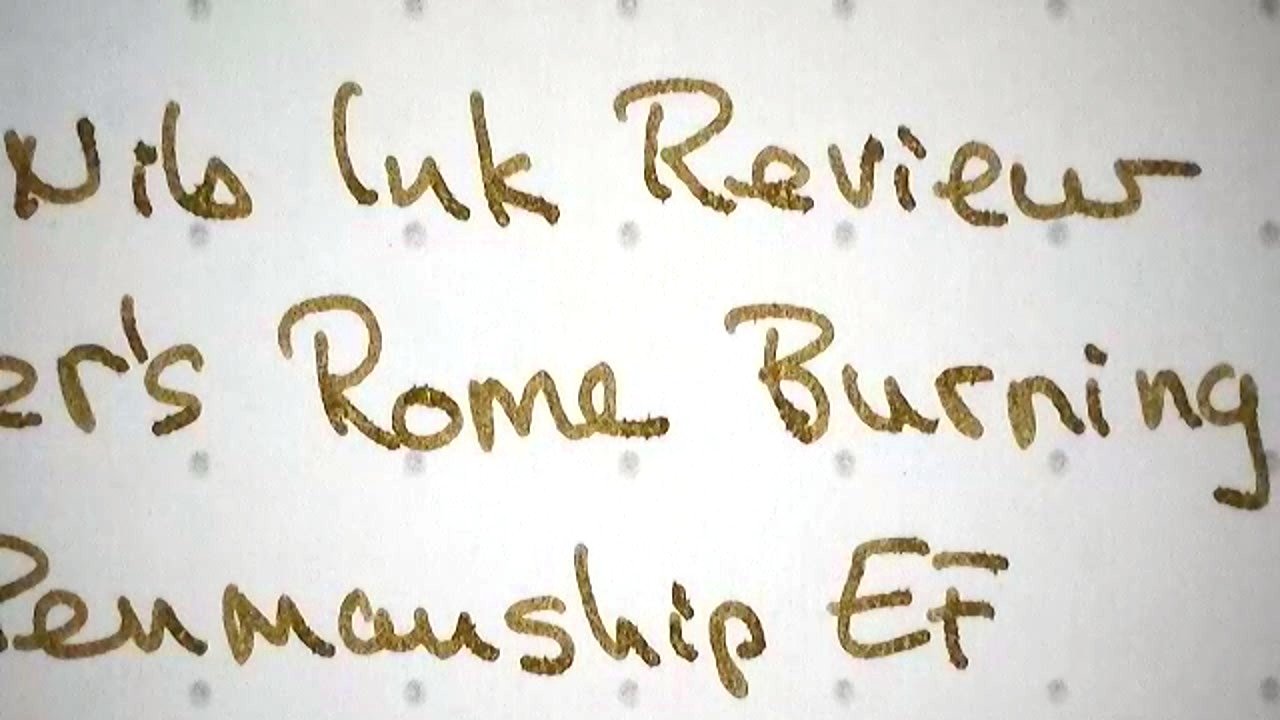 Nib Ink Review
er's Rome Burning
Penmanship EF